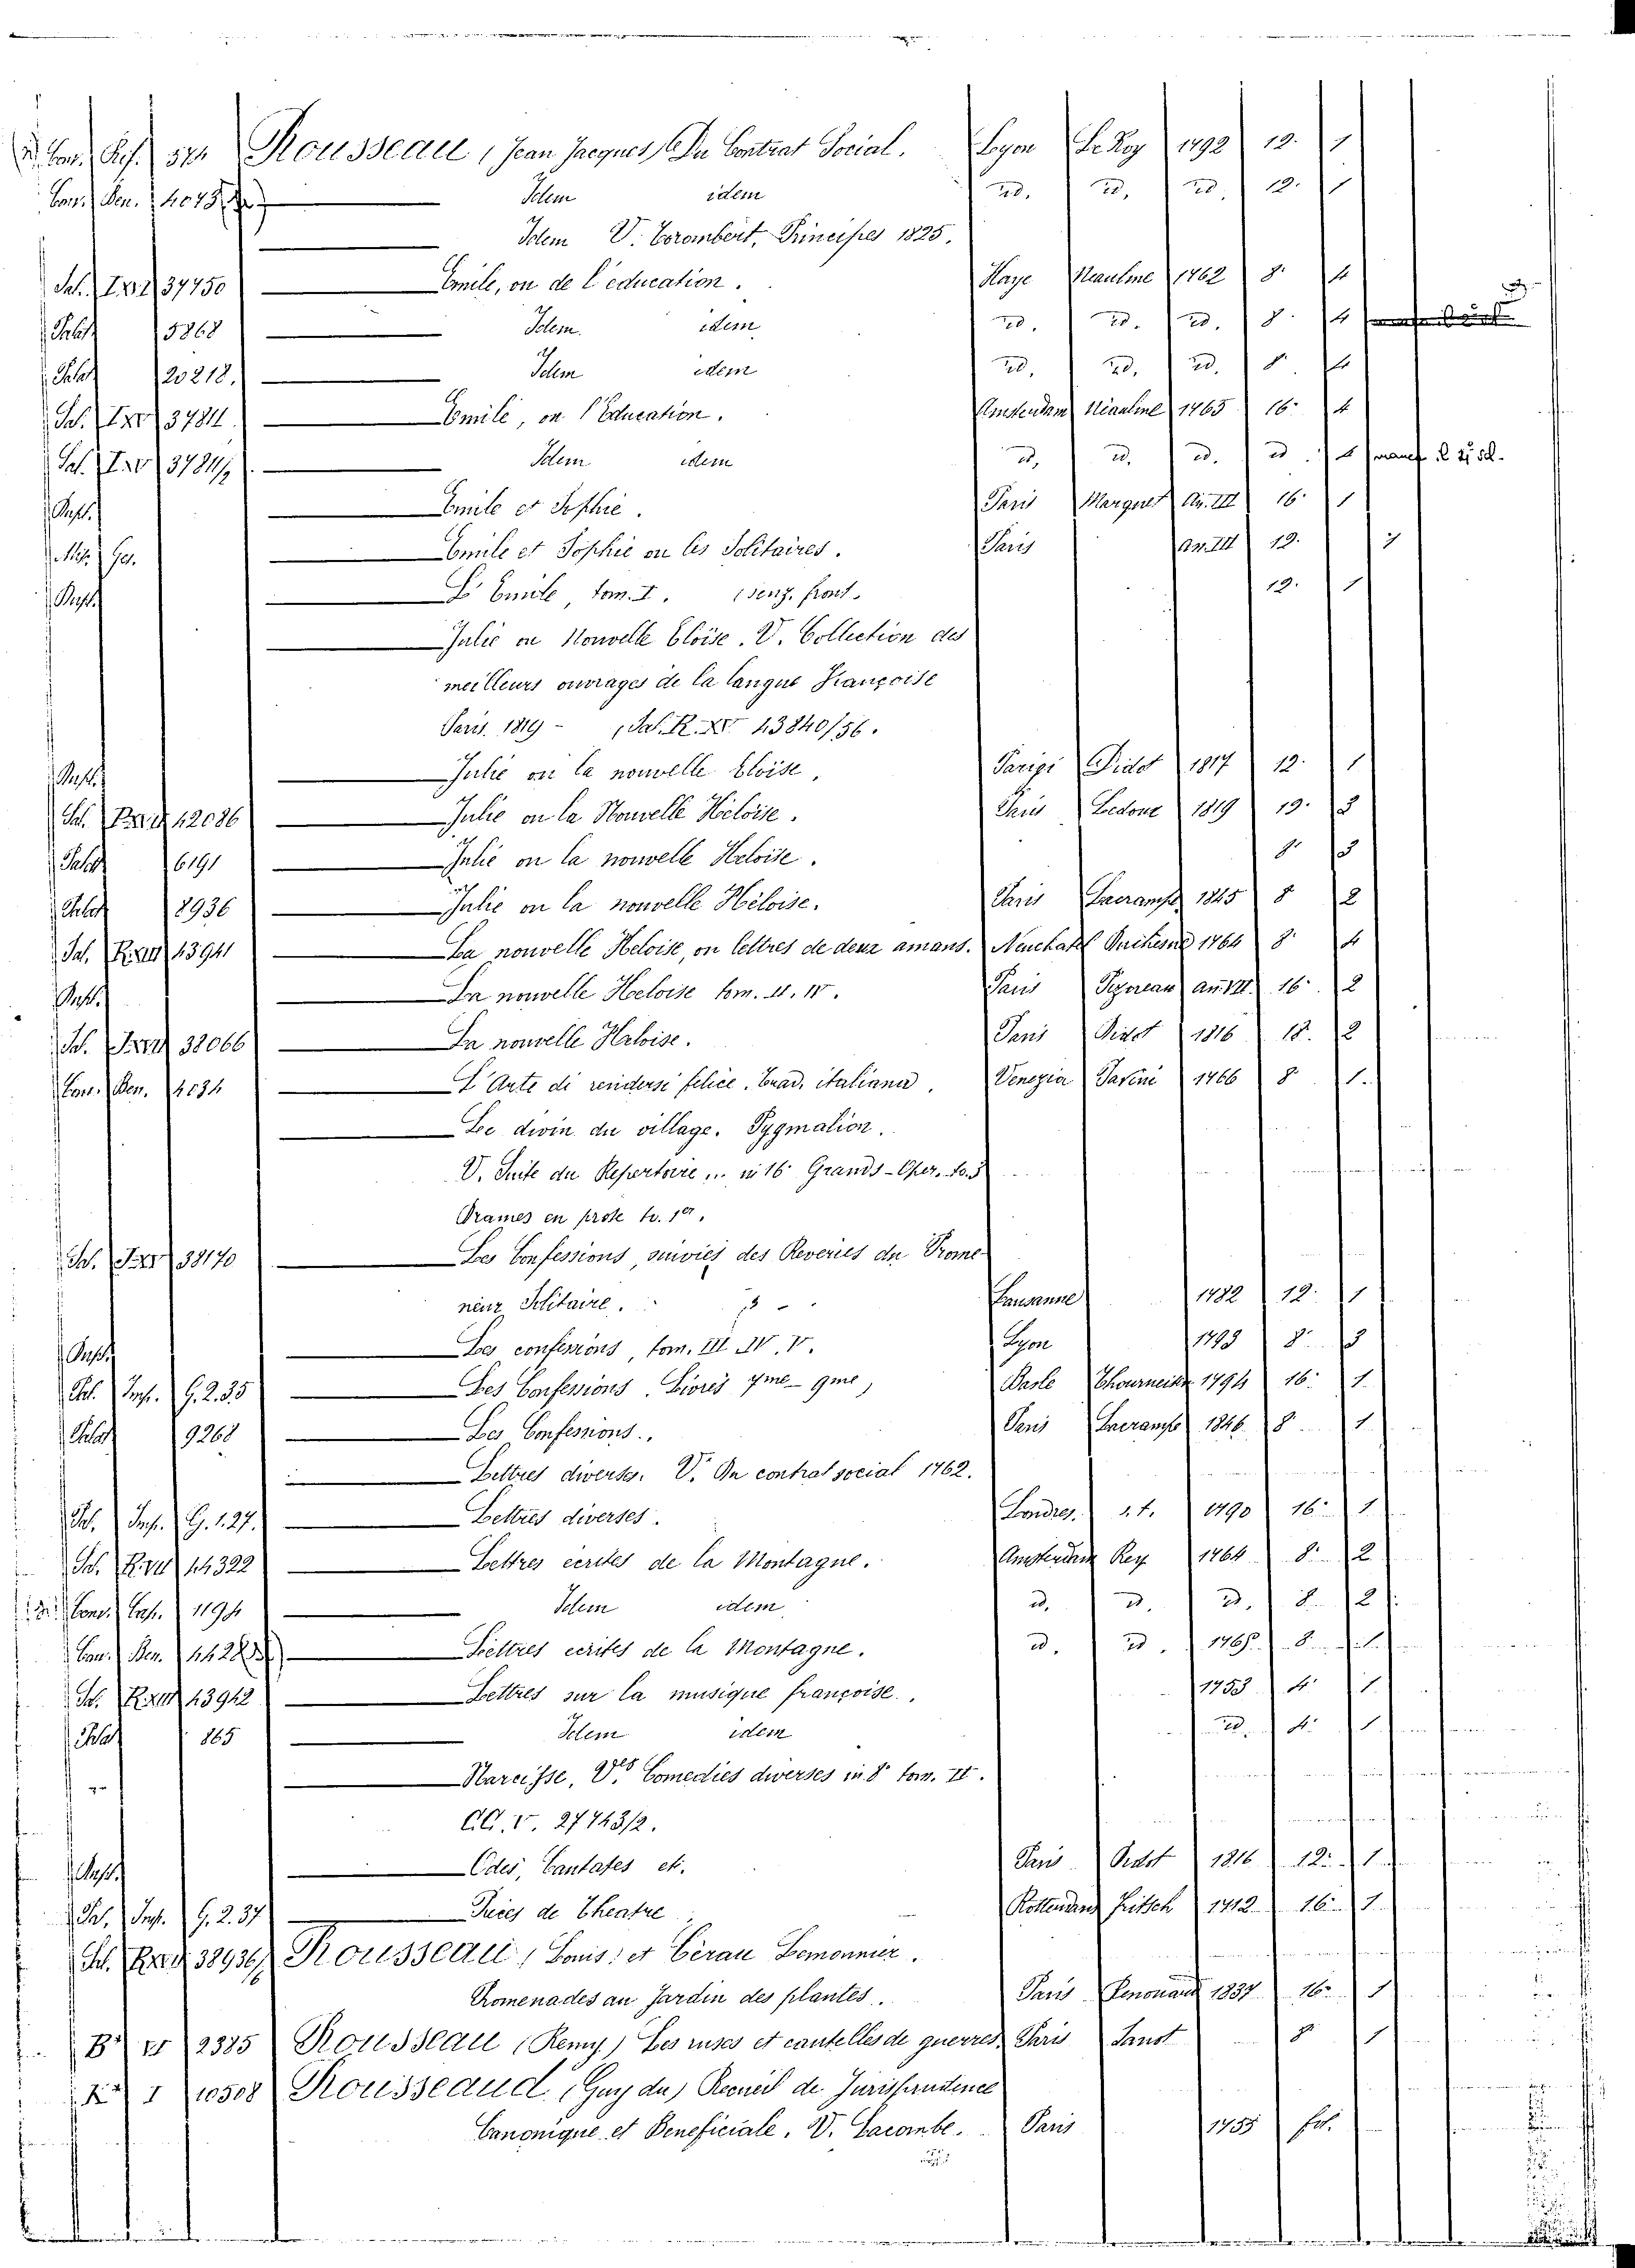 Con. Ris. 574 Rousseau (Jean Jacques) Du Contrat Social. Lyon Le Roy 1792 12. 1
Con. Ben. 4075 Idem idem id. id. id. 12. 1
Idem V. Corombert, Principes 1825.
Sal. 37750 Emile, ou de l'education. Haye Néaulme 1762 8. 4
Palat 5868 Idem. idem id. id. id. 8. 4
Palat 20218. Idem idem id. id. id. 8. 4
Sal. 37811 Emile, ou l'Education. Amsterdam Néaulme 1765 16. 4
Sal. Idem idem id. id. id. id. 4 manca il
Emile et Sophie. Paris Marquet An. III 16. 1
Emile et Sophie ou les Solitaires. Paris An. III 12.
L'Emile, tom. I. (senz. front. 12. 1
Julie ou Nouvelle Eloïse. V. Collection des
meilleurs ouvrages de la langue Françoise
Paris. 1819 - Sal. R. 43840/56.
Julie ou la nouvelle Eloise, Parigi Didot 1817 12. 1
Sal. 42086 Julie ou la Nouvelle Héloïse. Paris Ledoux 1819 12. 3
Palat 6191 Julie ou la nouvelle Heloïse. 8. 3
Palat 8936 Julie ou la nouvelle Héloïse. Paris Lacrampe 1845 8 2
Sal. 43941 La nouvelle Heloise, ou lettres de deux amans. Neuchatel Duchesne 1764 8. 4
La nouvelle Heloise tom. II. IV. Paris Pigoreau an. VII. 16. 2
Sal. 38066 La nouvelle Heloise. Paris Didot 1816 18. 2
Con. Ben. 4834 L'Arte di rendersi felice. Trad. italiana. Venezia Savini 1766 8 1.
Le divin du village. Pygmalion.
V. Suite du Repertoire... in 16 Grands-Oper. to. 3
Drames en prose to. 1er.
Sal. 38170 Les Confessions, suivies des Reveries du Prome-
neur Solitaire. Lausanne 1782 12. 1
Les confessions, tom. III IV. V. Lyon 1793 8. 3
Pal. Imp. G. 2. 35 Les Confessions. Livres 7me-9me, Basle Thourneisen 1794 16. 1
Palat 9268 Les Confessions. Paris Lacrampe 1846. 8 1
Lettres diverses. V. Du contrat social 1762.
Pal. Imp. G. 1. 27. Lettres diverses. Londres. s. t. 1790 16. 1
Sal. 44322 Lettres ecrites de la Montagne. Amsterdam Rey 1764 8. 2
Con. Cap. 1194 Idem idem id. id. id. 8. 2
Con. Ben. Lettres ecrites de la Montagne. id. id. 1765 8. 1.
Sal. 43942 Lettres sur la musique françoise. 1753 4. 1
Palat 865 Idem idem id. 4. 1
Narcisse, Ves Comedies diverses in 8o tom. II.
CC. V. 27743/2.
Odes, Cantates etc. Paris Didot 1816 12. 1
Pal. Imp. G. 2. 37 Pieces de Theatre Rotterdam Fritsch 1712 16. 1
Sal. 38936 Rousseau, Louis, et Céran Lemonnier.
Promenades au Jardin des plantes. Paris Renouard 1837 16. 1
Ba V 2385 Rousseau (Remy) Les ruses et cautelles de guerres. Paris Janot 8. 1
I 10508 Rousseaud (Guy du) Recueil de Jurisprudence
Canonique et Beneficiale. V. Lacombe. Paris 1755 fol.